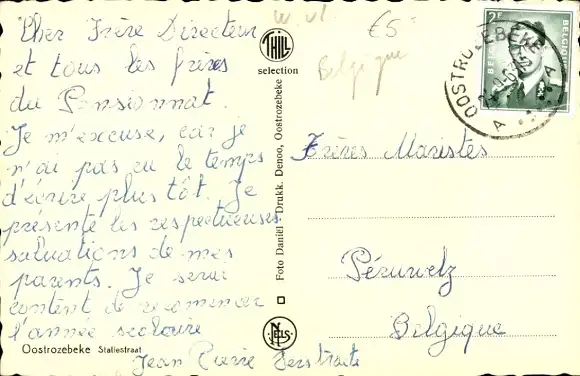 Cher Frère Directeur
et tous les frères
du Pensionnat.
Je m'excuse, car je
n'ai pas eu le temps
d'écrire plus tôt. Je
présente les respectueuses
saluations de mes
parents. Je serai
content de recommencer
l'année scolaire
Jean Pierre Verstraete
Oostrozebeke Stallestraat
w. vl.
€5
Belgique
THILL
selection
Foto Daniël - Drukk. Denoo, Oostrozebeke
NELS
2F
BELGIE
BELGIQUE
OOSTROZEBEKE
A A
Frères Maristes
Péruwelz
Belgique